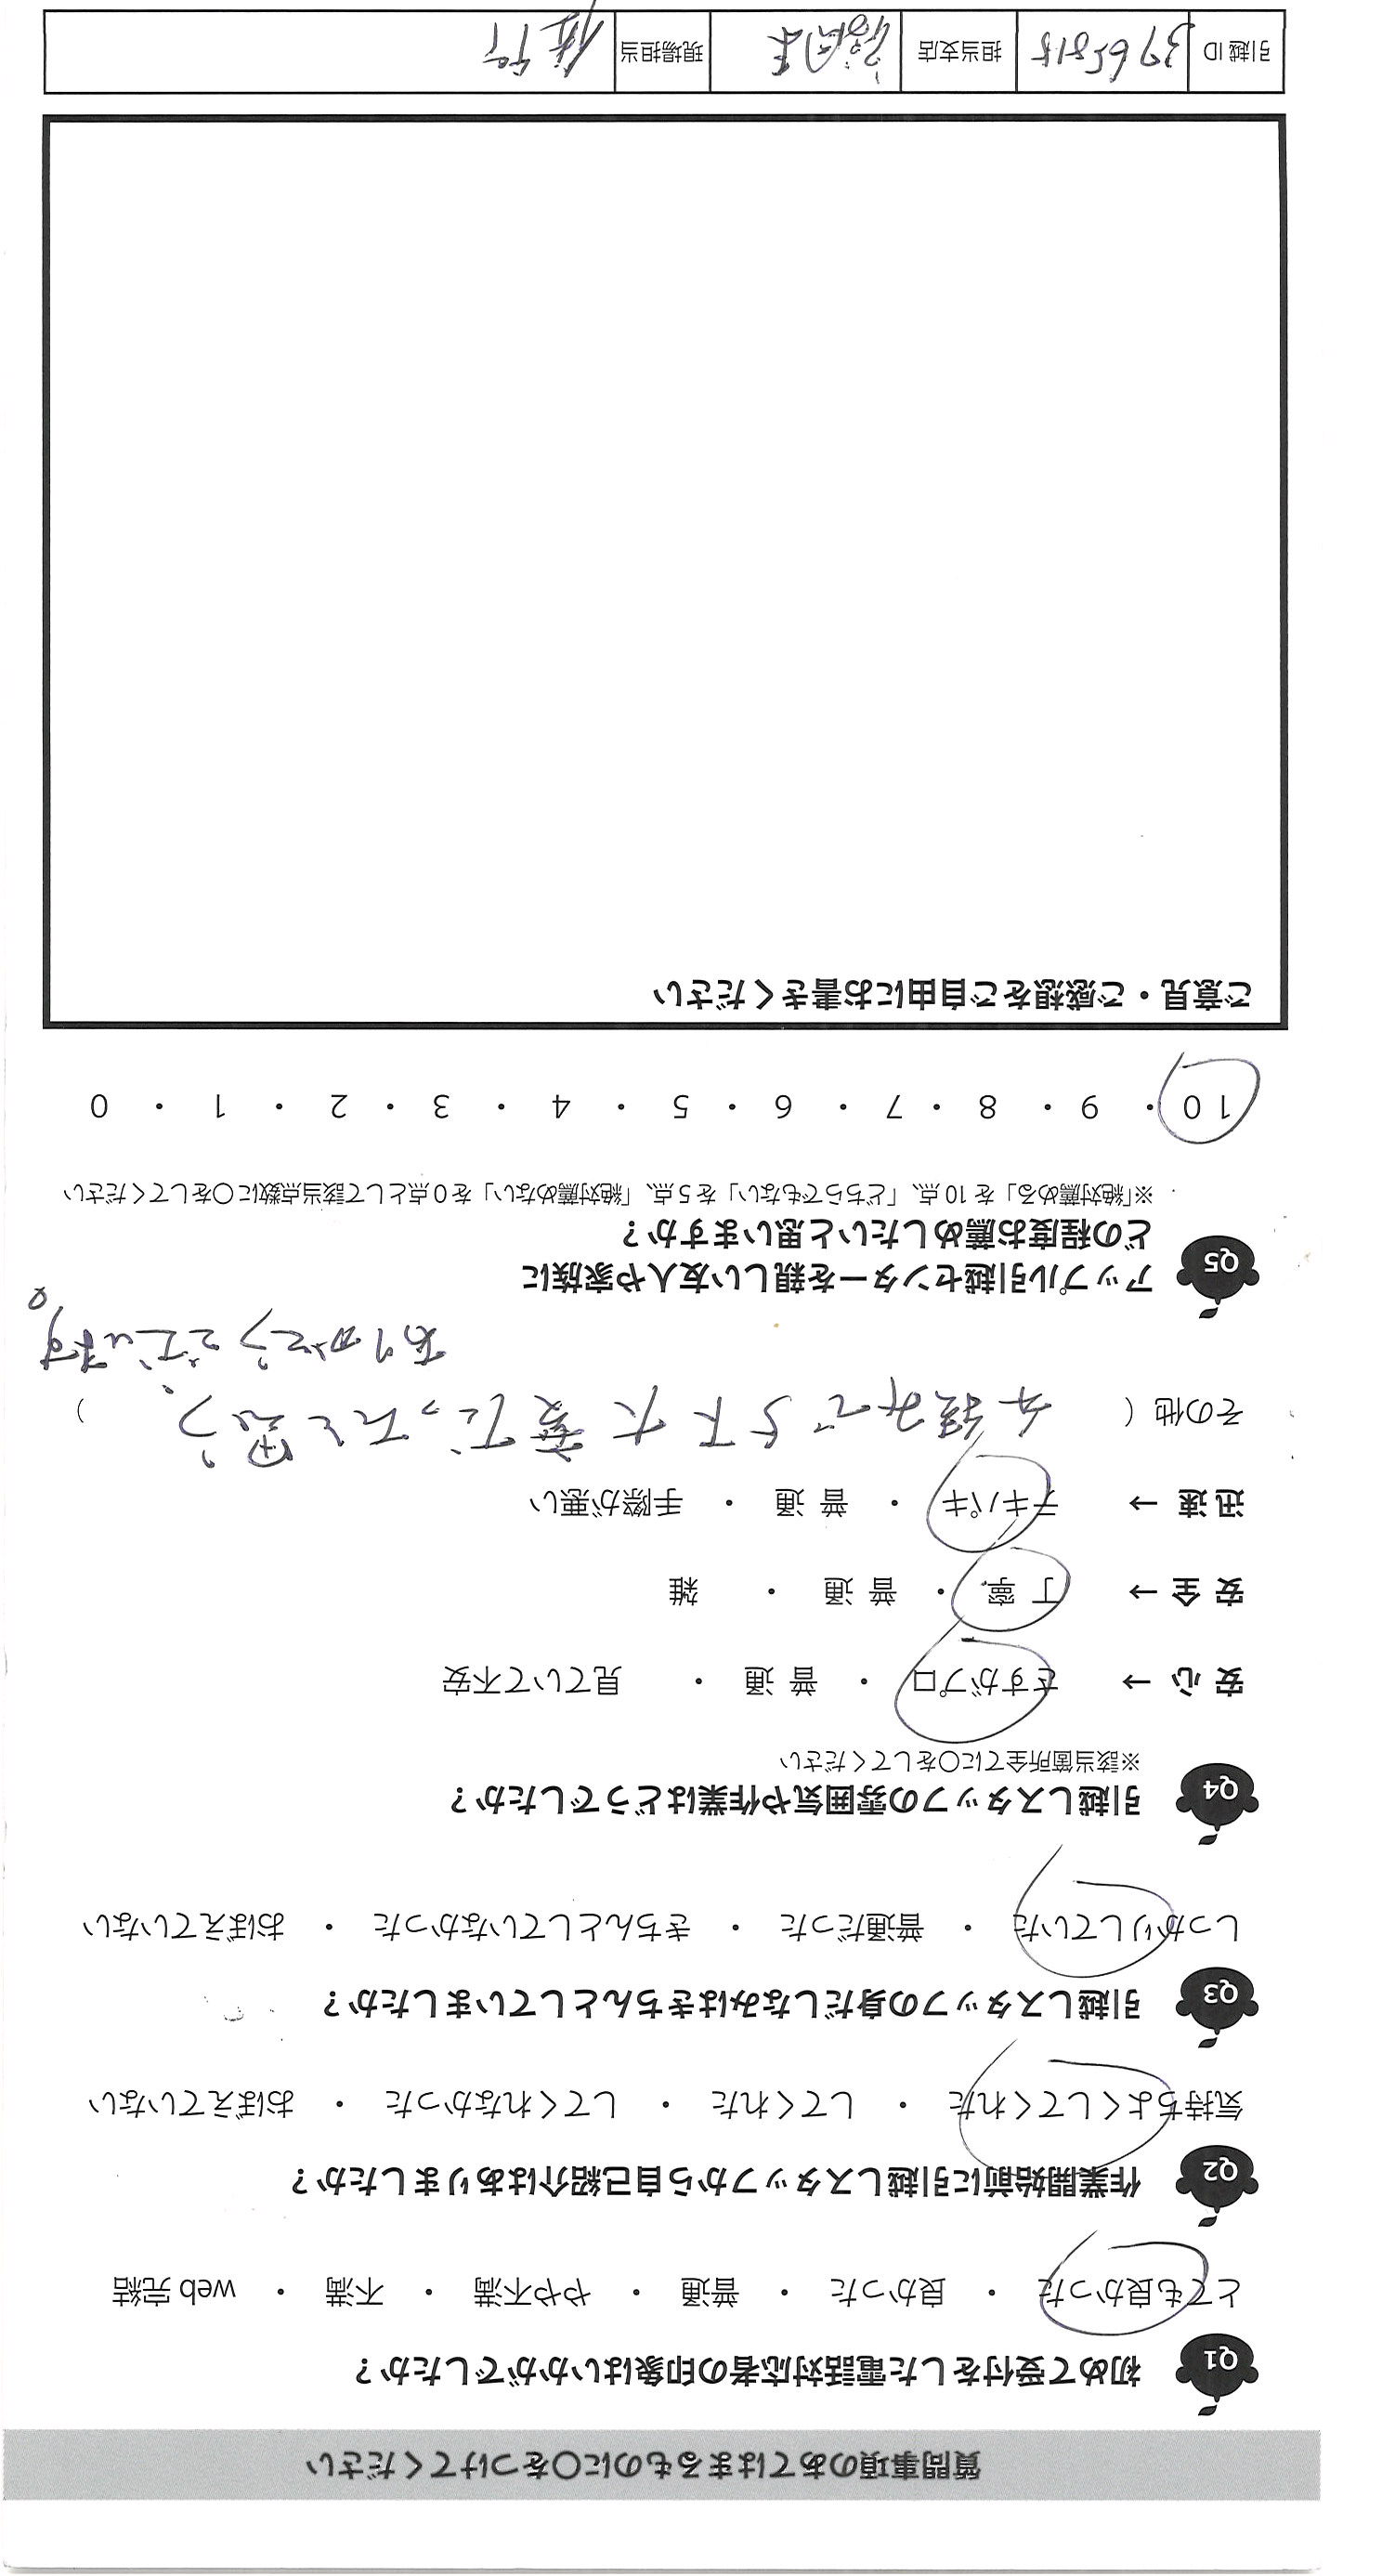 質問事項のあてはまるものに○をつけてください
Q1 初めて受付をした電話対応者の印象はいかがでしたか？
とても良かった ・ 良かった ・ 普通 ・ やや不満 ・ 不満 ・ web 完結
Q2 作業開始前に引越しスタッフから自己紹介はありましたか？
気持ちよくしてくれた ・ してくれた ・ してくれなかった ・ おぼえていない
Q3 引越しスタッフの身だしなみはきちんとしていましたか？
しっかりしていた ・ 普通だった ・ きちんとしていなかった ・ おぼえていない
Q4 引越しスタッフの雰囲気や作業はどうでしたか？
※該当箇所全てに○をしてください
安 心 → さすがプロ ・ 普 通 ・ 見ていて不安
安 全 → 丁 寧 ・ 普 通 ・ 雑
迅 速 → テキパキ ・ 普 通 ・ 手際が悪い
その他（ 大変だったと思う、 ）
ありがとうございます。
Q5 アップル引越センターを親しい友人や家族に
どの程度お薦めしたいと思いますか？
※「絶対薦める」を 10 点、「どちらでもない」を 5 点、「絶対薦めない」を 0 点として該当点数に○をしてください
10 ・ 9 ・ 8 ・ 7 ・ 6 ・ 5 ・ 4 ・ 3 ・ 2 ・ 1 ・ 0
ご意見・ご感想をご自由にお書きください
引越 ID 3965815 担当支店 福岡東 現場担当